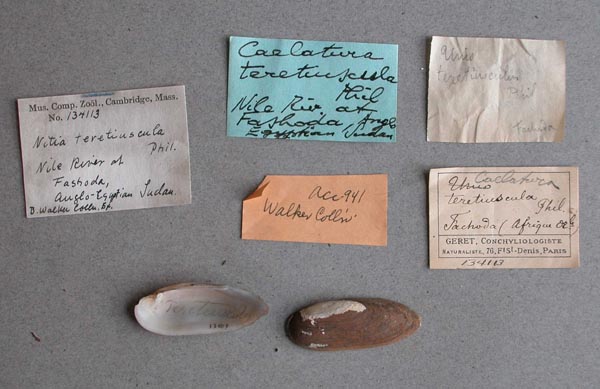 Mus. Comp. Zoöl., Cambridge, Mass.
No. 134113
Nitia teretiuscula
Phil.
Nile River at
Fashoda,
Anglo-Egyptian Sudan.
B. Walker Colln. Ex.
Caelatura
teretiuscula
Phil
Nile Riv at
Fashoda, Anglo
Egyptian Sudan
acc 941
Walker Coll'n
Unio
teretiusculus
Phil
Unio Caelatura
teretiuscula Phil
Fachoda (Afrique
GERET, CONCHYLIOLOGISTE
NATURALISTE, 76, Fg St-Denis, PARIS
134113
teretiuscula